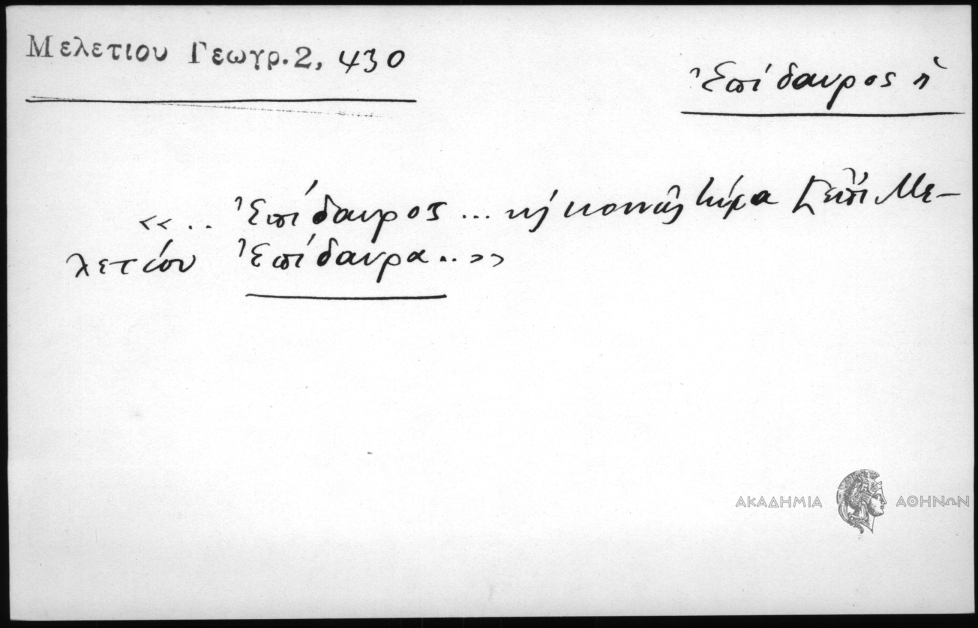 Μελετιου Γεωγρ. 2, 430
Ἐπίδαυρος ἡ
«.. Ἐπίδαυρος ... κοινῶς τώρα [ἐπὶ Με-
λετίου Ἐπίδαυρα..»
ΑΚΑΔΗΜΙΑ ΑΘΗΝΩΝ